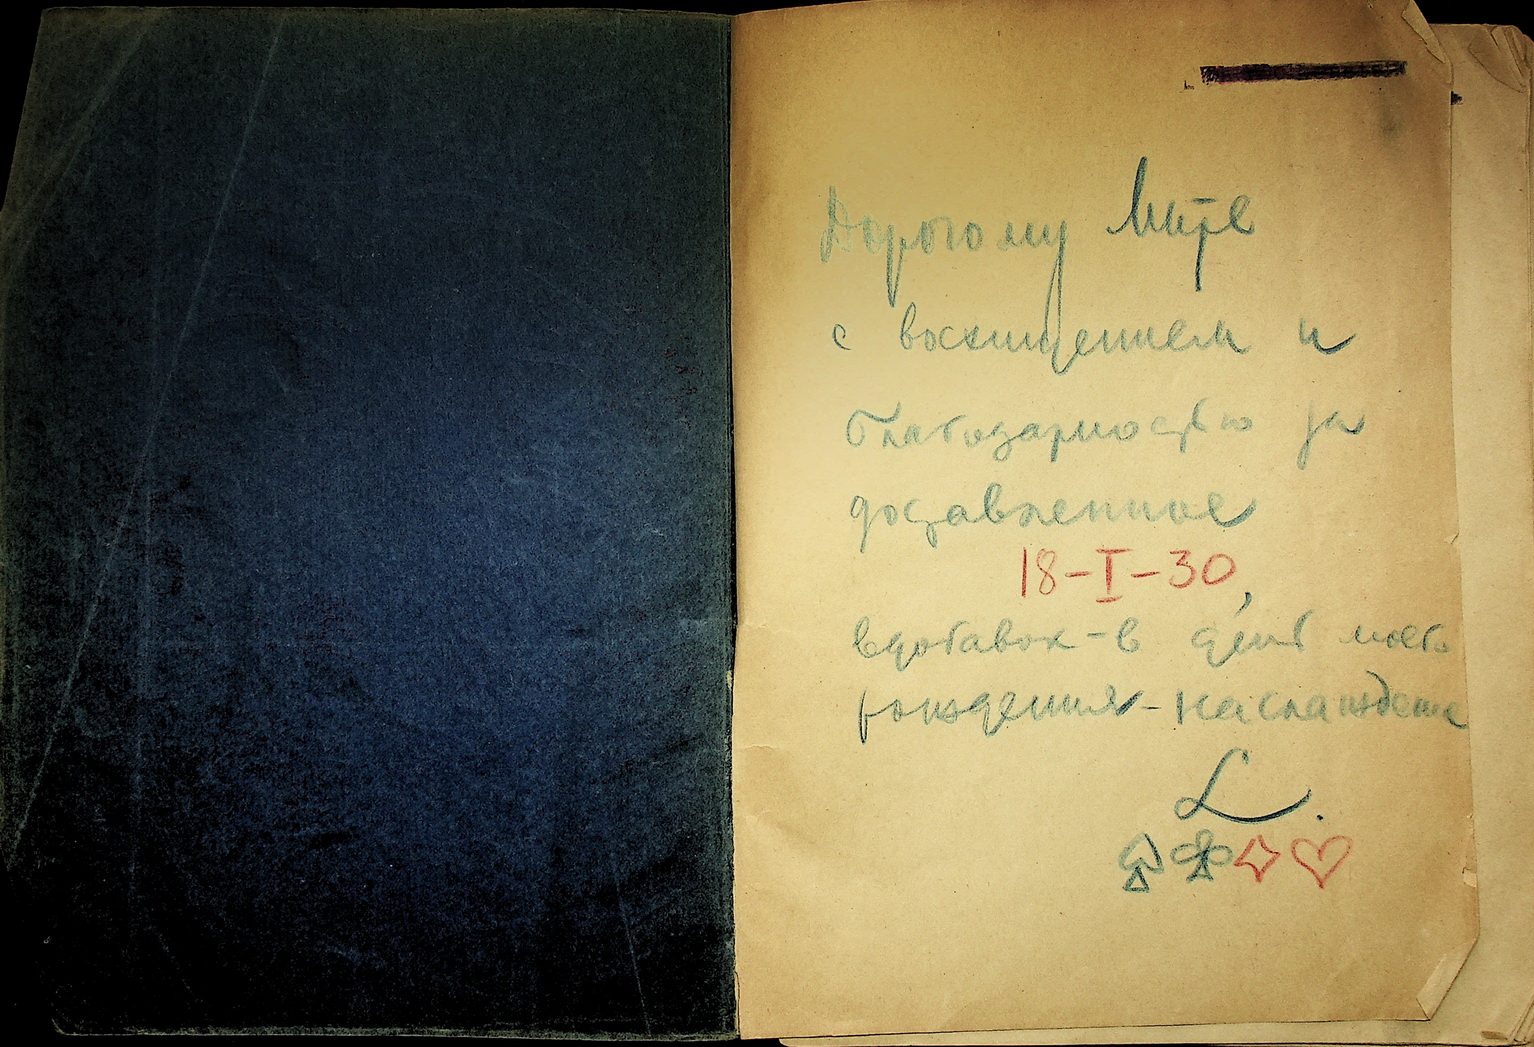 Дорогому Мите
с восхищением и
благодарностью за
доставленное
18-I-30,
вдобавок - в день моего
рождения - наслаждение
L.